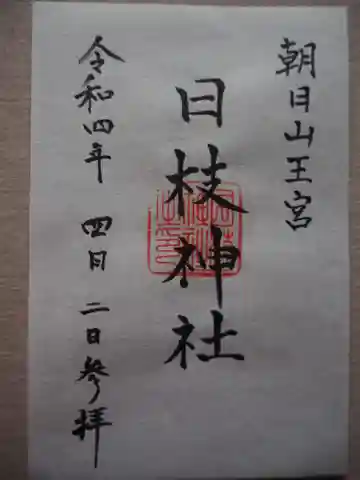 朝日山王宮
日枝神社
令和四年 四月 二日参拝